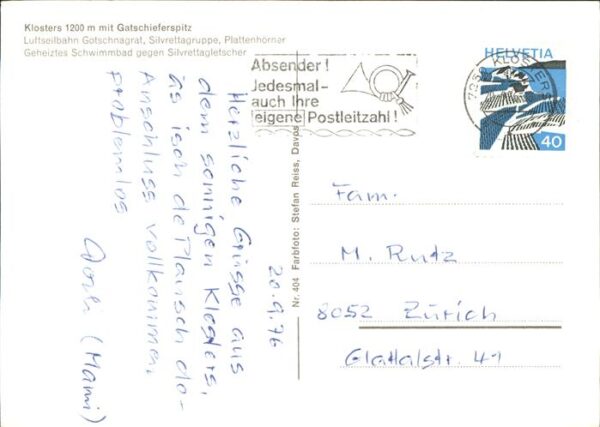 Klosters 1200 m mit Gatschieferspitz
Luftseilbahn Gotschnagrat, Silvrettagruppe, Plattenhörner
Geheiztes Schwimmbad gegen Silvrettagletscher
Absender!
Jedesmal-
auch Ihre
eigene Postleitzahl!
HELVETIA
40
7250 KLOSTERS
20.9.76
Herzliche Grüsse aus
dem sonnigen Klosters,
äs isch de Plausch do-
Anschluss vollkommen,
problemlos
(Mami)
Nr. 404 Farbfoto: Stefan Reiss, Davos
Fam.
M. Rutz
8052 Zürich
Glattalstr. 41